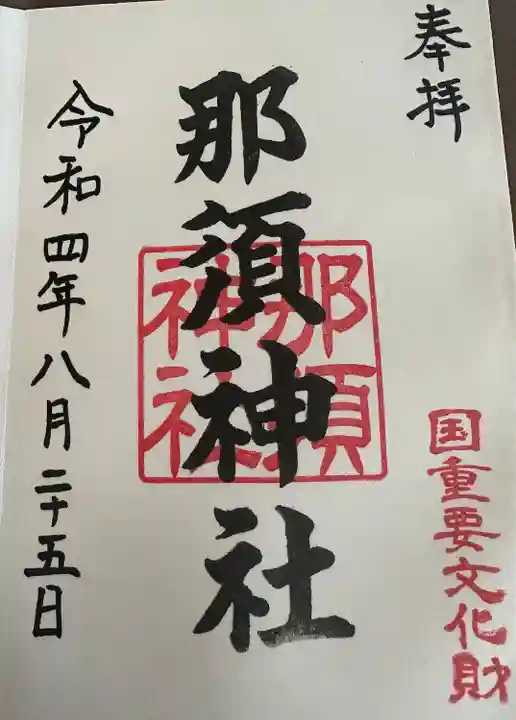 奉拝
国重要文化財
那須神社
那須
神社
令和四年八月二十五日